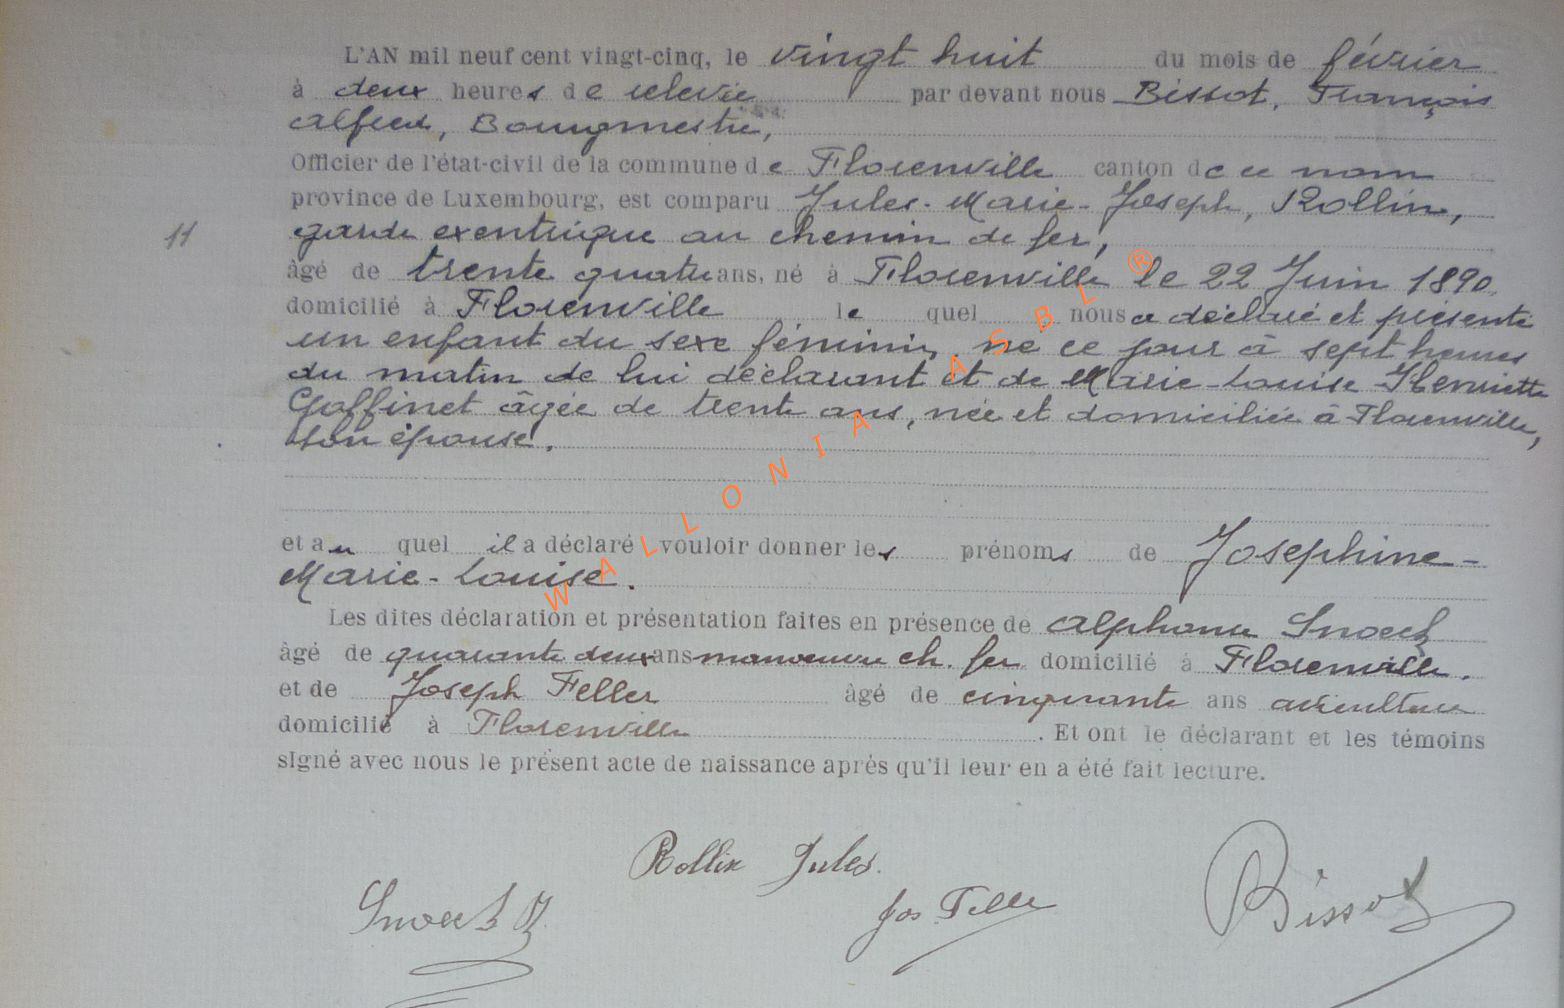 L'AN mil neuf cent vingt-cinq, le vingt huit du mois de février
à deux heures de relevée par devant nous Bissot, François
Alfred, Bourgmestre,
Officier de l'état-civil de la commune de Florenville canton de ce nom
province de Luxembourg, est comparu Jules-Marie-Joseph, Rollin,
11 garde exentrique au chemin de fer,
âgé de trente quatre ans, né à Florenville le 22 Juin 1890
domicilié à Florenville le quel nous a déclaré et présenté
un enfant du sexe féminin, né ce jour à sept heures
du matin de lui déclarant et de Marie-Louise Henriette
Goffinet âgée de trente ans, née et domiciliée à Florenville,
son épouse.
et au quel il a déclaré vouloir donner les prénoms de Josephine-
Marie-Louise.
Les dites déclaration et présentation faites en présence de Alphonse Snoeck
âgé de quarante deux ans manoeuvre ch. fer domicilié à Florenville.
et de Joseph Feller âgé de cinquante ans
domicilié à Florenville. Et ont le déclarant et les témoins
signé avec nous le présent acte de naissance après qu'il leur en a été fait lecture.
Rollin Jules.
Snoeck A Jos Feller Bissot
WALLONIA ASBL ®